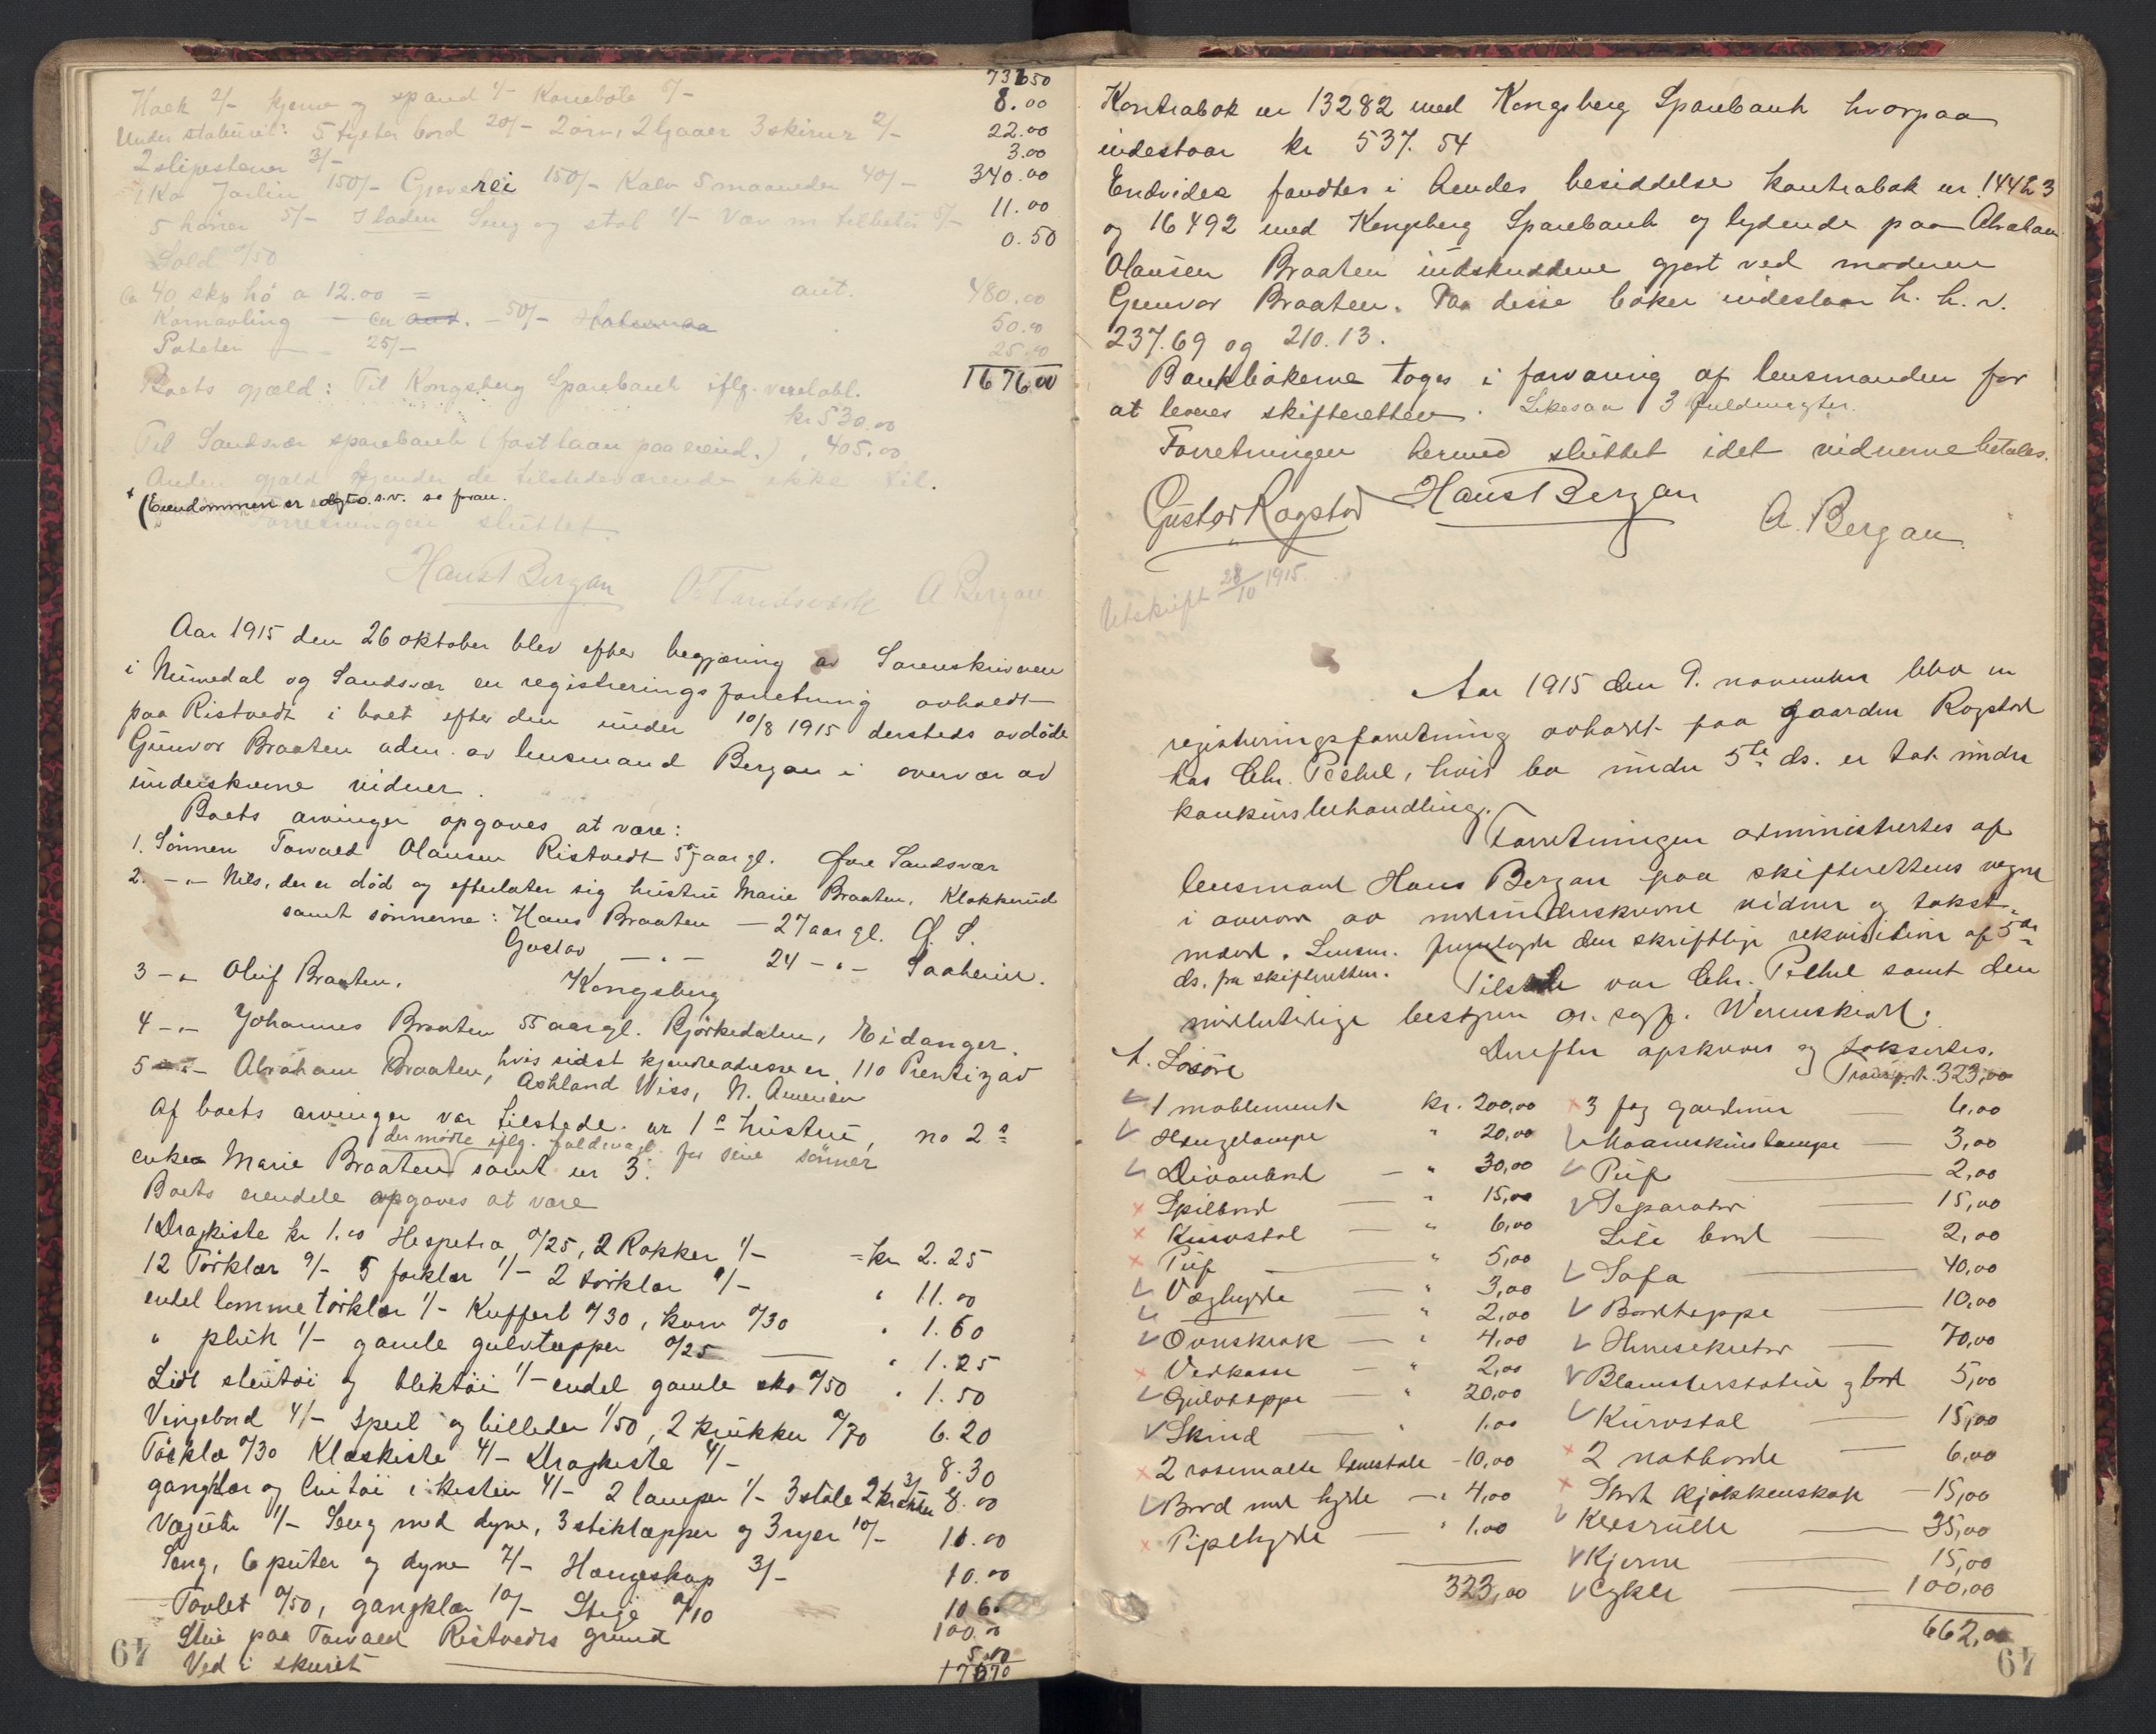 731.50
Hack 2/- kjerne og spand 1/- Konebote 5/- 8.00
Under staburet: 5 tylter bord 20/- 2 orv, 2 ljaaer 3 skirur 2/- 22.00
2 slipestener 3/- 3.00
1 Ko Jarlin 150/- 150/- Kalv 5 maaneder 40/- 340.00
5 høner 5/- I laden Seng og stol 1/- Væv m tilbehør 5/- 11.00
Sold 0/50 0.50
Ca 40 skp hø a 12.00 = ant. 480.00
Kornavling – en – 50/- 50.00
Poteter – 25/- 25.00
Boets gjæld: Til Kongsberg Sparebank iflg. vexelobl. 1676.00
kr 530.00
Til Sandsvær sparebank (fast laan paa eiend.) „ 405.00
Anden gjæld kjender de tilstedeværende ikke til.
+ (Eiendommen er solgt o.s.v. se foran.
Forretningen sluttet.
Hans Bergan O. Tandsværk A Bergan
Aar 1915 den 26 oktober blev efter begjæring av Sorenskriveren
i Numedal og Sandsvær en registreringsforretning avholdt
paa Ristvedt i boet efter den under 10/8 1915 dersteds avdøde
Gunvor Braaten adm. av lensmand Bergan i overvær av
underskrevne vidner.
Boets arvinger opgaves at være:
1. Sønnen Torvald Olausen Ristvedt 57 aar gl. Øvre Sandsvær
2. -„- Nils, der er død og efterlater sig hustru Marie Braaten, Klokkerud
samt sønnerne: Hans Braaten – 27 aar gl. Ø. S.
Gustav -„- 24 -„- Saaheim.
3 -„ Oluf Braaten, Kongsberg
4 -„- Johannes Braaten 55 aar gl. Bjørkedalen, Eidanger.
5 -„- Abraham Braaten, hvis sidst kjendte adresse er 110 Prentiz av
Ashland Wiss, N. Amerika
Af boets arvinger var tilstede nr 1s hustru, no 2s
der mødte iflg. fuldmagt for sine sønner
enke Marie Braaten samt nr 3.
Boets eiendele opgaves at være
1 Dragkiste kr 1.00 Hespetra 0/25, 2 Rokker 1/- = kr 2.25
12 Tørklær 9/- 5 forklær 1/- 2 tørklær 1/- „ 11.00
endel lommetørklær 1/- Kuffert 0/30, kurv 0/30 „ 1.60
„ pluk 1/- gamle gulvtæpper 0/25 – „ 1.25
Lidt stentøi og bliktøi 1/- endel gamle sko 0/50 „ 1.50
Vingebord 4/- Speil og billeder 1/50, 2 krukker 0/70 6.20
Tørklæ 0/30 Klæskiste 4/- Dragkiste 4/- 8.30
gangklær og lintøi i kisten 4/- 2 lamper 1/- 3 stole 3/- 8.00
Vægur 1/- Seng med dyne, 3 stiktæpper og 3 ryer 10/- 11.00
Seng, 6 puter og dyne 7/- Hængeskap 3/- 10.00
Tavlet 0/50, gangklær 10/- Stige 0/10 10 60
Stue paa Torvald Ristvedts grund 100.00
Ved i skuret 5.00
176.70
64
Kontrabok nr 13282 med Kongsberg Sparebank hvorpaa
indestaar kr 537.54
Endvidere fandtes i hendes besiddelse kontrabok nr 14423
og 16492 med Kongsberg Sparebank og lydende paa Abraham
Olausen Braaten indskuddene gjort ved moderen
Gunvor Braaten. Paa disse bøker indestaar h. h. v.
237.69 og 210.13.
Bankbøkerne toges i forvaring af lensmanden for
at leveres skifteretten. Likesaa 3 fuldmagter.
Forretningen hermed sluttet idet vidnerne betales.
Gustav Rogstad Hans Bergan A. Bergan
Utskrift 28/10 1915.
Aar 1915 den 9. november blev en
registreringsforretning avholdt paa gaarden Rogstad
hos Chr. Pethel, hvis bo under 5te ds. er tat under
konkursbehandling.
Forretningen administrertes af
lensmand Hans Bergan paa skifterettens vegne
i overvær av medunderskrevne vidner og takst-
mænd. Lensm. fremlagde den skriftlige rekvisition af 5te
ds. fra skifteretten.
Tilstede var Chr. Pethel samt den
midlertidige bestyrer or. sagf. Wernskiold.
Derefter opskreves og taksertes.
A. Løsøre Transport 323,00
1 moblement kr. 200,00
Hengelampe „ 20,00
Divanbord – „ 30,00
Spilbord – „ 15,00
Kurvstol – „ 6,00
Puf – „ 5,00
Væghylde – „ 3,00
– „ 2,00
Ovnskrok – „ 4,00
Vedkasse – „ 2,00
Gulvteppe – „ 20,00
Skind – „ 1.00
2 rosemalte stole – 10,00
Bord med hylde – „ 4,00
Pipehylde – „ 1.00
323,00
3 fag gardiner – 6,00
Maaneskinslampe – 3,00
Puf – 2,00
Separator – 15,00
Lite bord – 2,00
Sofa – 40,00
Bordteppe – 10,00
Skrivesekretær – 70,00
Blomsterstativ og bord 5,00
Kurvstol – 15,00
2 natborde – 6,00
Stort kjøkkenskap – 15,00
Klesrulle – 35,00
Kjerne – 15,00
Cykle – 100,00
662,00
64